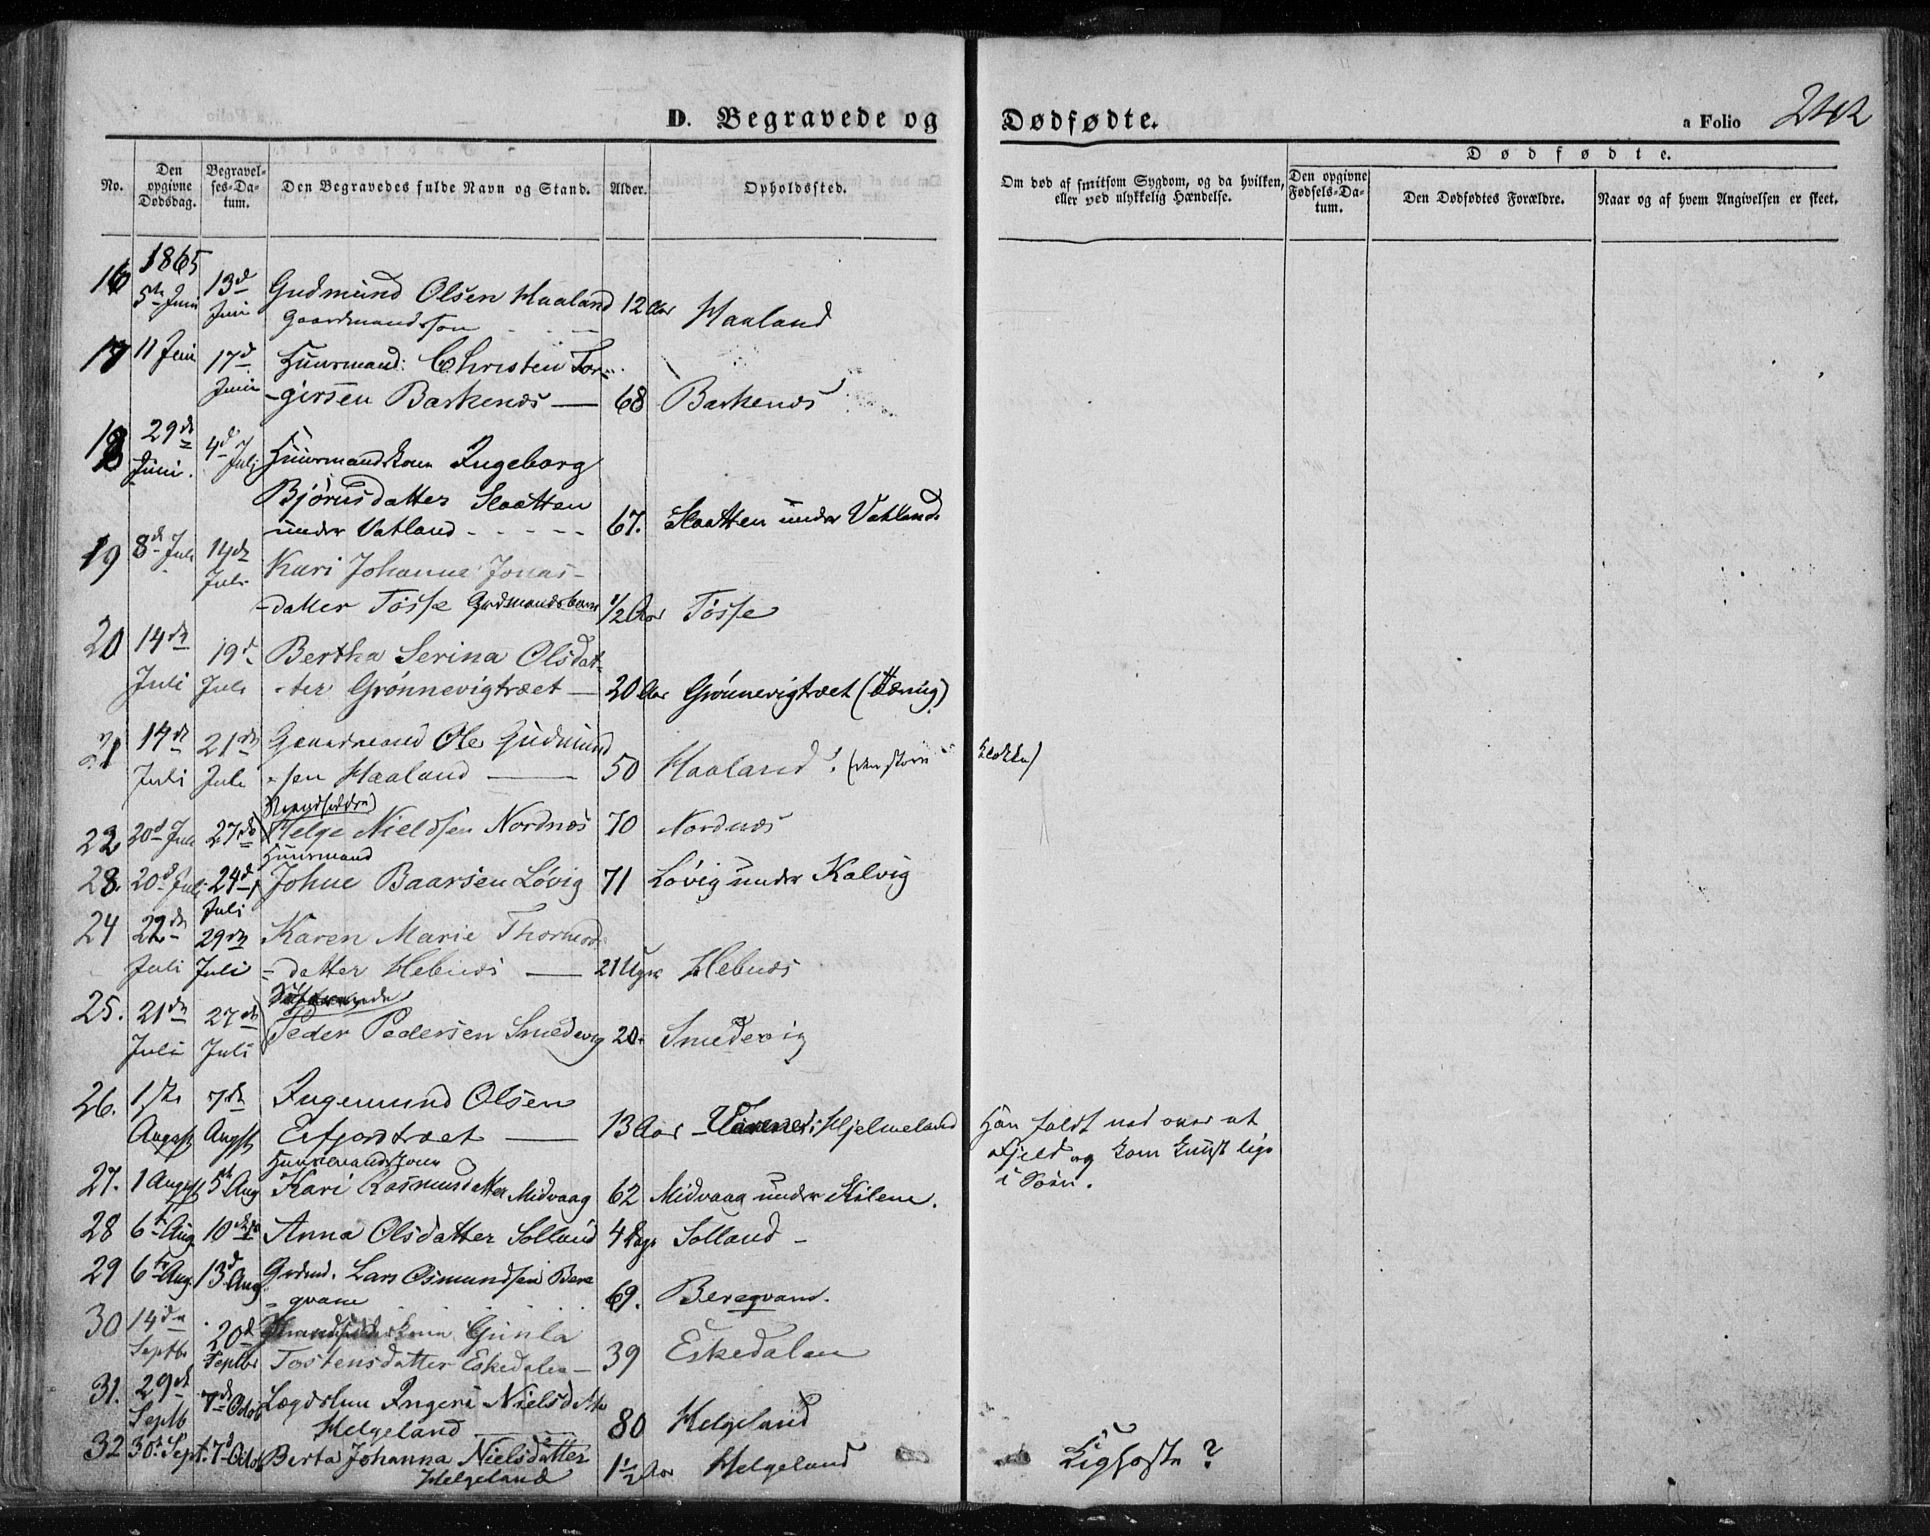 D. Begravede og Dødfødte.
a Folio 242
No.
Den opgivne Dødsdag.
Begravelses-Datum.
Den Begravedes fulde Navn og Stand.
Alder.
Opholdssted.
Om død af smitsom Sygdom, og da hvilken, eller ved ulykkelig Hændelse.
Dødfødte.
Den opgivne Fødsels-Datum.
Den Dødfødtes Forældre.
Naar og af hvem Angivelsen er skeet.
1865
16 5te Juni 13d Juni Gudmund Olsen Haaland 12 Aar Haaland
Gaardmandssøn
17 11 Juni 17d Juni Huusmand: Christen Tor-
-gersen Barkenæs — 68 Barkenæs
18 29de Juni. 4d Juli Huusmandskone Ingeborg
Bjørnsdatter Slaatten
under Vatland - - - - - 67. Slaatten under Vatland.
19 8de Juli 14de Juli Kari Johanne Jonas-
-datter Tösse Grdmandsbarn 1/2 Aar Tösse
20 14de Juli 19d Juli Bertha Serina Olsdat-
-ter Grønnevigtræet — 20 Aar Grønnevigtræet
21 14de Juli 21de Juli Gaardmand Ole Gudmund
-sen Haaland — 50 Haaland. (den store Klokke)
Strandsidder
22 20d Juli 27de Helge Nielssen Nordnæs 70 Nordnæs
Huusmand
23. 20d Juli 24d Juli Johne Baarsen Løvig 71 Løvig under Kalvig
24 22de Juli 29de Juli Karen Marie Thormods
-datter Hebnæs — 21 Uger Hebnæs
25. 21de Juli 27de Juli Peder Pedersen Smedevig 20 Smedevig
26. 1ste Augst 7de Augst Ingemund Olsen
Erfjordtræet — 13 Aar i Hjelmeland Han faldt ned over et
Fjeld og kom knust
i Søen.
Huusmandskone
27. 1 Augst 5te Aug Kari Rasmusdatter Midvaag 62 Midvaag under
28 6te Aug 10de Anna Olsdatter Solland 4 Dage Solland -
29 6te Aug. 13d Aug Grdmd. Lars Osmundsen Berg
-qvam 69. Bergqvam.
30 14de Septbr 20d Septbr Gunla
Tostensdatter Eskedalen — 39 Eskedalen
31. 29de Septb 7de Octob Lægdslem Ingeri Nielsdatter
Helgeland — 80 Helgeland
32 30te Sept. 7d Octob Berta Johanna Nielsdatter 1 1/2 Aar Helgeland Kighoste?
Helgeland